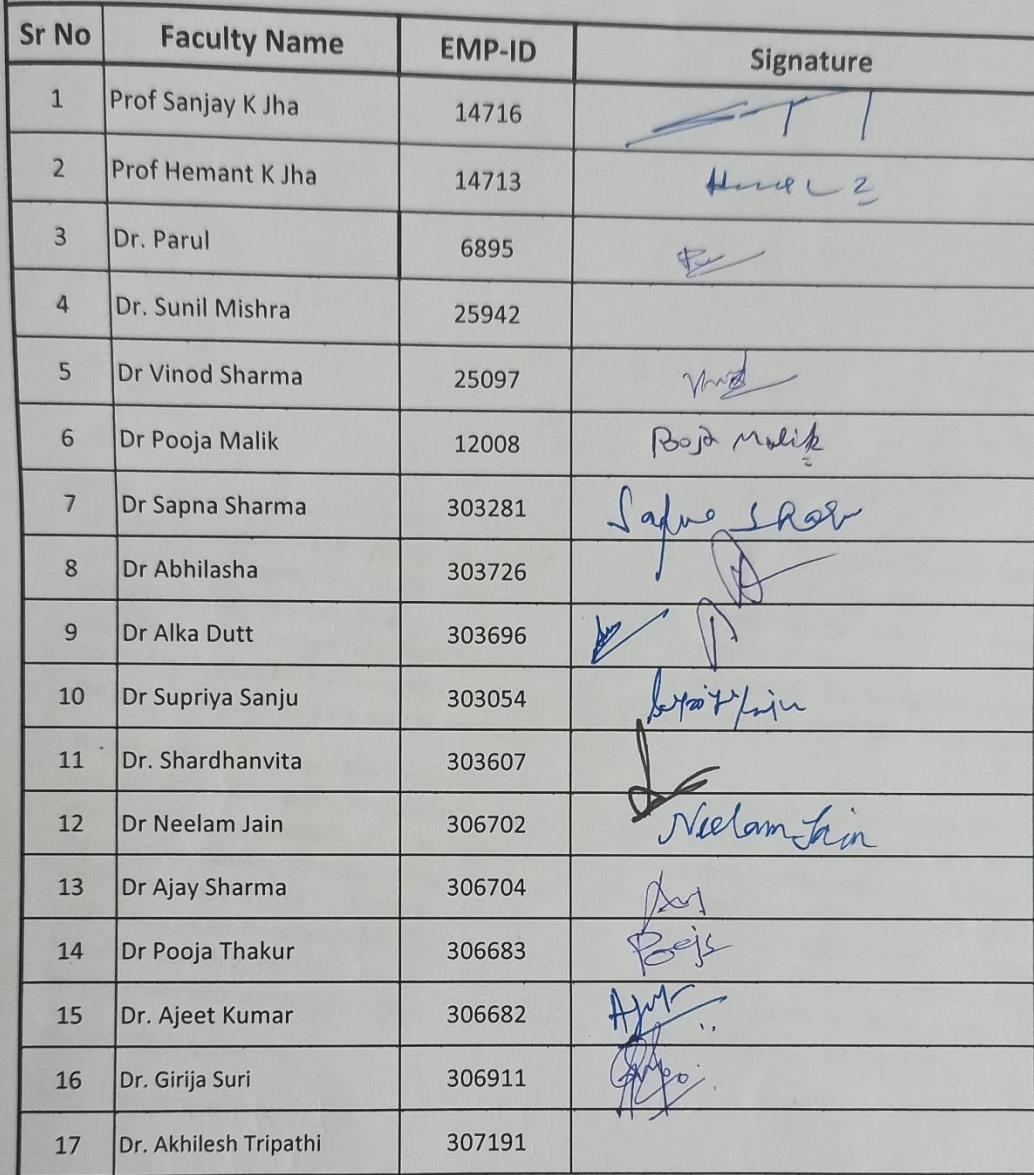 Sr No Faculty Name EMP-ID Signature
1 Prof Sanjay K Jha 14716
2 Prof Hemant K Jha 14713
3 Dr. Parul 6895
4 Dr. Sunil Mishra 25942
5 Dr Vinod Sharma 25097
6 Dr Pooja Malik 12008 Pooja Malik
7 Dr Sapna Sharma 303281
8 Dr Abhilasha 303726
9 Dr Alka Dutt 303696
10 Dr Supriya Sanju 303054
11 Dr. Shardhanvita 303607
12 Dr Neelam Jain 306702 Neelam Jain
13 Dr Ajay Sharma 306704
14 Dr Pooja Thakur 306683
15 Dr. Ajeet Kumar 306682
16 Dr. Girija Suri 306911
17 Dr. Akhilesh Tripathi 307191